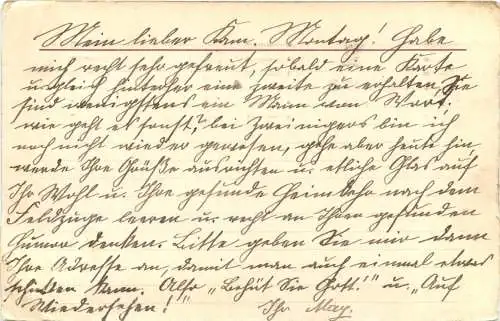 Mein lieber Kam. Montag! Habe
mich recht sehr gefreut, sobald eine Karte
u. gleich hinterher eine zweite zu erhalten, Sie
sind wenigstens ein Mann von Wort.
Wie geht es sonst? bei Zweinigers bin ich
noch nicht wieder gewesen, gehe aber heute hin,
werde Ihre Grüße ausrichten u. etliche Glas auf
Ihr Wohl u. Ihre gesunde Heimkehr nach dem
Feldzuge leeren u. recht an Ihren gesunden
Humor denken. Bitte geben Sie mir dann
Ihre Adresse an, damit man auch einmal etwas
schicken kann. Also "Behüt Sie Gott!" u. "Auf
Wiedersehen!" Ihr May.